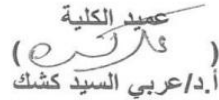 عميد الكلية
( )
أ.د/عربي السيد كشك